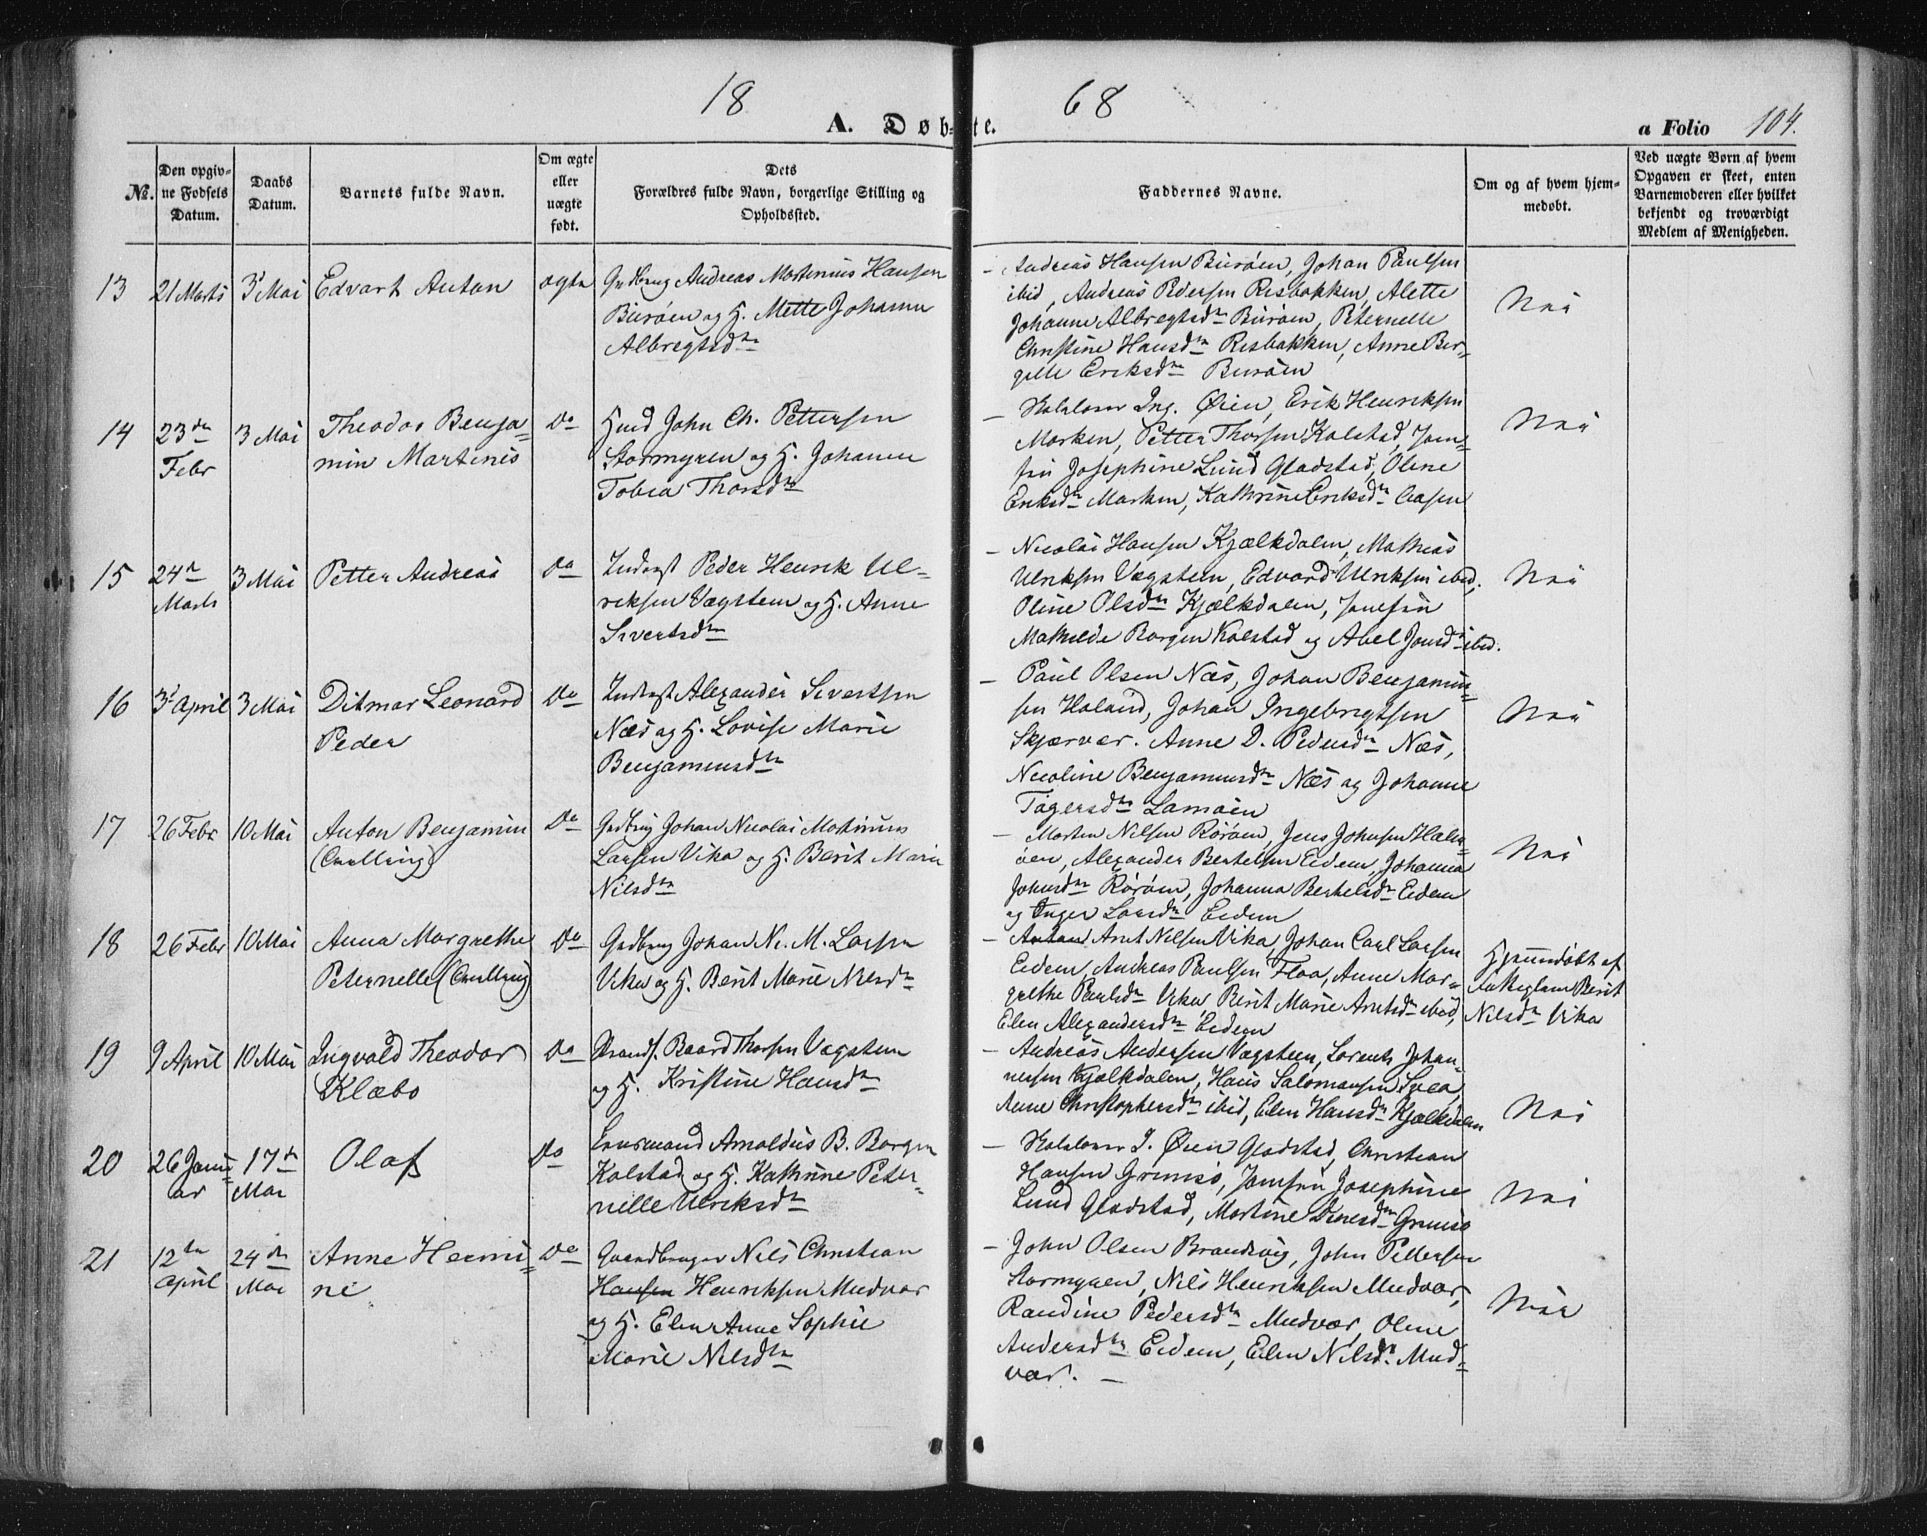 18 68
A. Døbte.
a Folio 104.
No.
Den opgiv-
ne Fødsels
Datum.
Daabs
Datum.
Barnets fulde Navn.
Om ægte
eller
uægte
født.
Dets
Forældres fulde Navn, borgerlige Stilling og
Opholdssted.
Faddernes Navne.
Om og af hvem hjem-
medøbt.
Ved uægte Børn af hvem
Opgaven er skeet, enten
Barnemoderen eller hvilket
bekjendt og troværdigt
Medlem af Menigheden.
13
21 Marts
3 Mai
Edvart Anton
ægte
Grdbrug Andreas Martinius Hansen
Burøen og H. Mette Johanna
Albregtsdtr
– Andreas Hansen Burøen, Johan Paulsen
ibid, Andreas Pedersen Risbakken, Alette
Johanne Albregtsdtr Burøen, Peternelle
Christine Hansdtr Risbakken, Anne Ber-
gitte Eriksdtr Burøen
Nei
14
23de
Febr
3 Mai
Theodor Benja-
min Martinis
Do
Hmd John Ch. Pettersen
Stormyren og H. Johanna
Tobea Thorsdtr
– Ing. Øien, Erik Henriksen
Marken, Petter Thorsen Kolstad, Jom-
fru Josephine Lund Gladstad, Oline
Eriksdtr Marken, Kathrine Eriksdtr Aasen
Nei
15
24de
Marts
3 Mai
Petter Andreas
Do
Inderst Peder Henrik Ul-
riksen Vægsteen og H. Anne
Sivertsdtr
– Nicolai Hansen Kjælkdalen, Mathias
Ulriksen Vægsteen, Edvard Ulriksen ibid,
Oline Olsdtr Kjælkdalen, Jomfru
Mathilde Borgen Kolstad og Abel Jonsdtr ibid.
Nei
16
3 April
3 Mai
Ditmar Leonard
Peder
Do
Inderst Alexander Sivertsen
Næs og H. Lovise Marie
Benjaminsdtr
– Paul Olsen Næs, Johan Benjamin-
sen Høland, Johan Ingebrigtsen
Skjærvær. Anne D. Pedersdtr Næs,
Nicoline Benjaminsdtr Næs og Johanne
Tøgersdtr Lamøen
Nei
17
26 Febr
10 Mai
Anton Benjamin
(Tvilling)
Do
Grdbrug Johan Nicolai Martinius
Larsen Vika og H. Berit Marie
Nilsdtr
– Morten Nilsen Rørøen, Jens Johnsen Halm-
øen, Alexander Bertelsen Eidem, Johanna
Johnsdtr Rørøen, Johanna Bertelsdtr Eidem
og Inger Larsdtr Eidem
Nei
18
26 Febr
10 Mai
Anna Margrethe
Peternelle (Tvilling)
Do
Grdbrug Johan N. M. Larsen
Vika og H. Berit Marie Nilsdtr
– Arnt Nilsen Vika, Johan Carl Larsen
Eidem, Andreas Paulsen Floa, Anne Mar-
grethe Paulsdtr Vika, Berit Marie Arntsdtr ibid,
Elen Alexandersdtr Eidem
Hjemmedøbt af
Berit
Nilsdtr Vika
19
9 April
10 Mai
Ingvald Theodor
Klæbo
Do
Strands. Baard Thorsen Vægsteen
og H. Kristine Hansdtr
– Andreas Andersen Vægsteen, Lorents Johan-
nessen Kjælkdalen, Hans Salomonsen Svea,
Anne Christophersdtr ibid, Elen Hansdtr Kjælkdalen
Nei
20
26 Janu-
ar
17de
Mai
Olaf
Do
Lensmand Arnoldus B. Borgen
Kolstad og H. Kathrine Peter-
nille Ulriksdtr
– I. Øien Gladstad, Christian
Hansen Grimsø, Jomfru Josephine
Lund Gladstad, Martine Grimsø
Nei
21
12te
April
24de
Mai
Anne Hermi-
ne
Do
Gaardbruger Nils Christian
Hansen Henriksen Mudvær
og H. Elen Anne Sophie
Marie Nilsdtr
– John Olsen Brandvig, John Pettersen
Stormyren, Nils Henriksen Mudvær,
Randine Pedersdtr Mudvær, Oline
Andersdtr Eidem, Elen Nilsdtr Mud-
vær. –
Nei